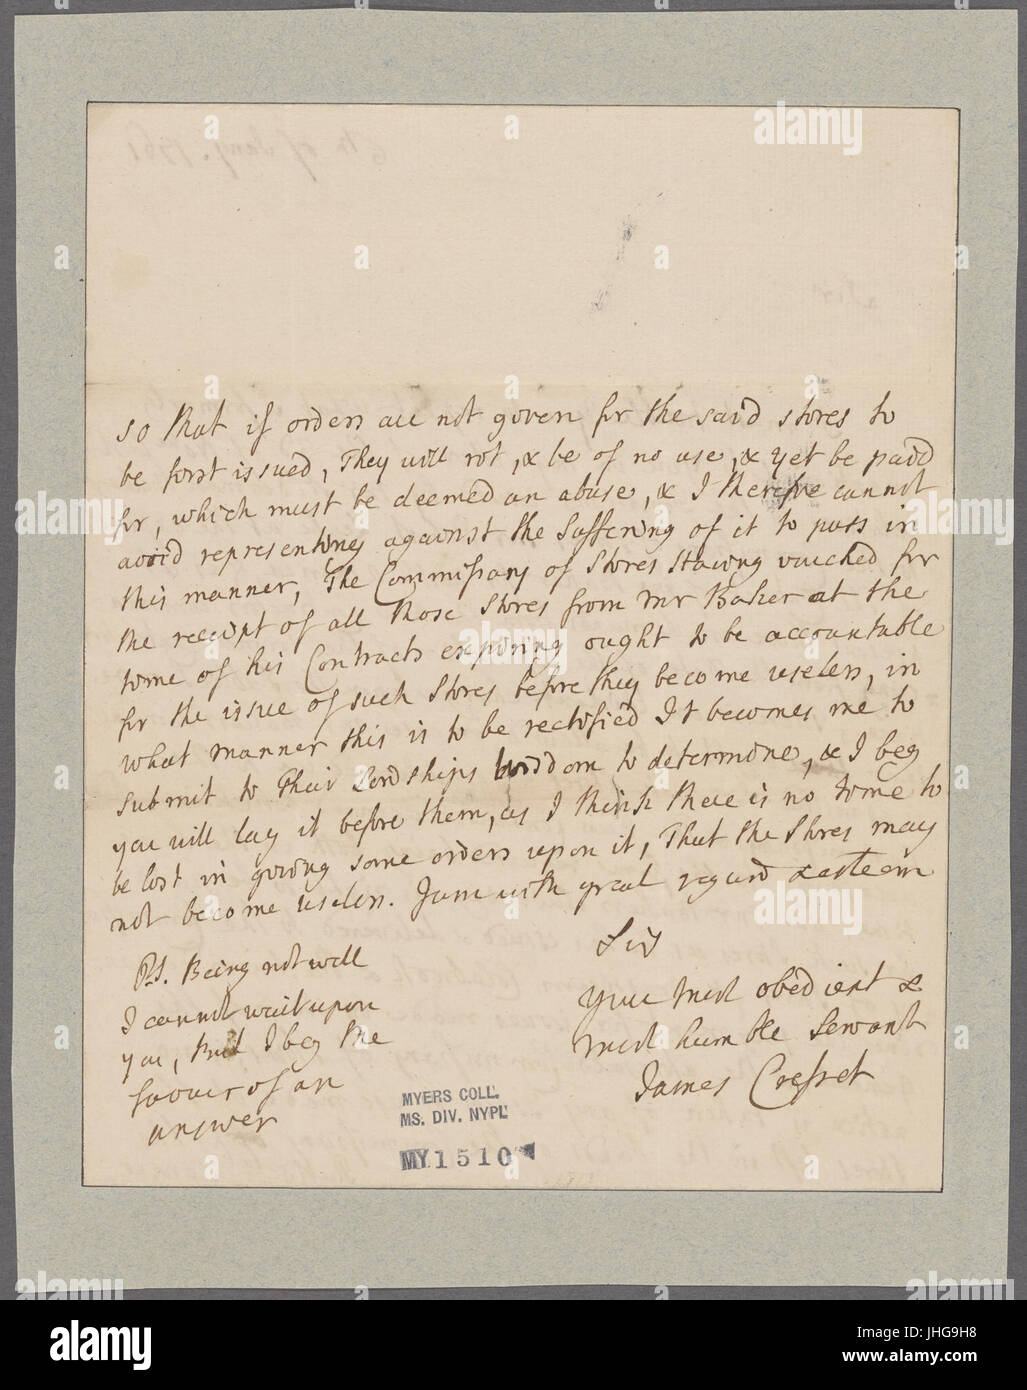 so that if orders are not given for the said stores to
be first issued, They will rot, & be of no use, & yet be paid
for, which must be deemed an abuse, & I therefore cannot
avoid representing against the Suffering of it to pass in
this manner, The Commissary of Stores Staving vouched for
the receipt of all those Stores from Mr Baker at the
time of his Contracts expiring ought to be accountable
for the issue of such Stores before they become useless, in
what manner this is to be rectified It becomes me to
submit to Their Lordships wisdom to determine, & I beg
you will lay it before them, as I think there is no time to
be lost in giving some orders upon it, That the Stores may
not become useless. I am with great regard & esteem
Sir
Your most obedient &
most humble Servant
James Cresset
P.S. Being not well
I cannot wait upon
you, but I beg the
favour of an
answer
MYERS COLL.
MS. DIV. NYPL
MY 1510
alamy
Image ID: JHG9H8
www.alamy.com